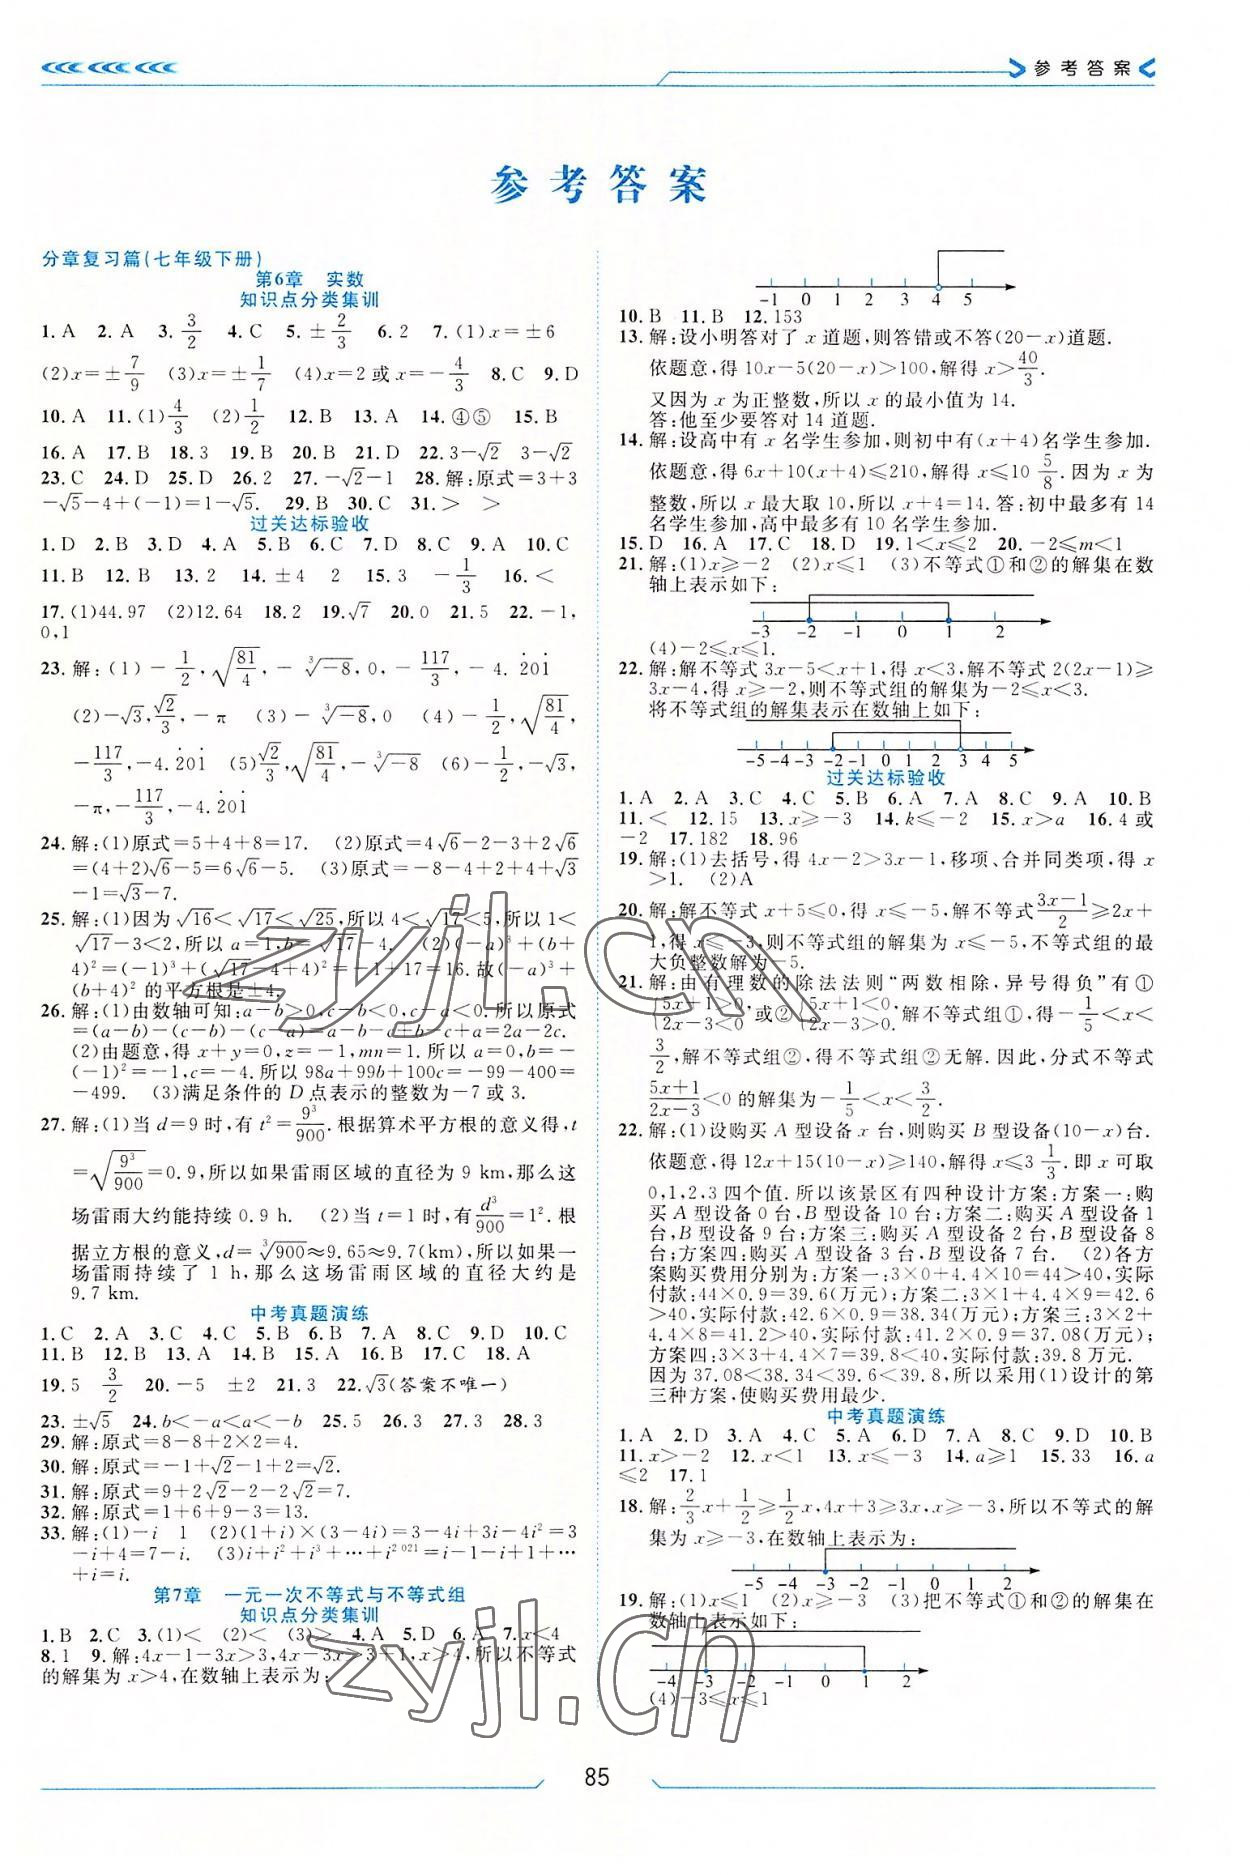 参考答案
参考答案
分章复习篇(七年级下册)
第6章　实数
知识点分类集训
1. A　2. A　3. 3/2　4. C　5. ±2/3　6. 2　7. (1)x=±6
(2)x=±7/9　(3)x=±1/7　(4)x=2或x=-4/3　8. C　9. D
10. A　11. (1)4/3　(2)1/2　12. B　13. A　14. ④⑤　15. B
16. A　17. B　18. 3　19. B　20. B　21. D　22. 3-√2　3-√2
23. C　24. D　25. D　26. 2　27. -√2-1　28. 解:原式=3+3
-√5-4+(-1)=1-√5.　29. B　30. C　31. >　>
过关达标验收
1. D　2. B　3. D　4. A　5. B　6. C　7. D　8. C　9. A　10. C
11. B　12. B　13. 2　14. ±4　2　15. 3　-1/3　16. <
17. (1)44.97　(2)12.64　18. 2　19. √7　20. 0　21. 5　22. -1,
0,1
23. 解:(1)-1/2,√(81/4),-∛-8,0,-117/3,-4.2̇01̇
(2)-√3,√2/3,-π　(3)-∛-8,0　(4)-1/2,√(81/4),
-117/3,-4.2̇01̇　(5)√2/3,√(81/4),-∛-8　(6)-1/2,-√3,
-π,-117/3,-4.2̇01̇
24. 解:(1)原式=5+4+8=17.　(2)原式=4√6-2-3+2√6
=(4+2)√6-5=6√6-5.　(3)原式=-8-4+2+4+√3
-1=√3-7.
25. 解:(1)因为√16<√17<√25,所以4<√17<5,所以1<
√17-3<2,所以a=1,b=√17-4.　(2)(-a)³+(b+
4)²=(-1)³+(√17-4+4)²=-1+17=16.故(-a)³+
(b+4)²的平方根是±4.
26. 解:(1)由数轴可知:a-b>0,c-b<0,c-a<0.所以原式
=(a-b)-(c-b)-(c-a)=a-b-c+b-c+a=2a-2c.
(2)由题意,得x+y=0,z=-1,mn=1.所以a=0,b=-
(-1)²=-1,c=-4.所以98a+99b+100c=-99-400=
-499.　(3)满足条件的D点表示的整数为-7或3.
27. 解:(1)当d=9时,有t²=9³/900.根据算术平方根的意义得,t
=√(9³/900)=0.9,所以如果雷雨区域的直径为9 km,那么这
场雷雨大约能持续0.9 h.　(2)当t=1时,有d³/900=1².根
据立方根的意义,d=∛900≈9.65≈9.7(km),所以如果一
场雷雨持续了1 h,那么这场雷雨区域的直径大约是
9.7 km.
中考真题演练
1. C　2. A　3. C　4. C　5. B　6. B　7. A　8. C　9. D　10. C
11. B　12. B　13. A　14. B　15. A　16. B　17. C　18. A
19. 5　3/2　20. -5　±2　21. 3　22. √3(答案不唯一)
23. ±√5　24. b<-a<a<-b　25. 5　26. 3　27. 3　28. 3
29. 解:原式=8-8+2×2=4.
30. 解:原式=1+√2-1+2=√2.
31. 解:原式=9+2√2-2-2√2=7.
32. 解:原式=1+6+9-3=13.
33. 解:(1)-i　1　(2)(1+i)×(3-4i)=3-4i+3i-4i²=3
-i+4=7-i.　(3)i+i²+i³+…+i²⁰²¹=i-1-i+1+…
+i=i.
第7章　一元一次不等式与不等式组
知识点分类集训
1. B　2. C　3. (1)<　(2)<　(3)>　4. A　5. D　6. A　7. x<4
8. 1　9. 解:4x-1-3x>3,4x-3x>3+1,x>4,所以不等式
的解集为x>4,在数轴上表示为:
-1 0 1 2 3 4 5
10. B　11. B　12. 153
13. 解:设小明答对了x道题,则答错或不答(20-x)道题.
依题意,得10x-5(20-x)>100,解得x>40/3.
又因为x为正整数,所以x的最小值为14.
答:他至少要答对14道题.
14. 解:设高中有x名学生参加,则初中有(x+4)名学生参加.
依题意,得6x+10(x+4)≤210,解得x≤10 5/8.因为x为
整数,所以x最大取10,所以x+4=14.答:初中最多有14
名学生参加,高中最多有10名学生参加.
15. D　16. A　17. C　18. D　19. 1<x≤2　20. -2≤m<1
21. 解:(1)x≥-2　(2)x≤1　(3)不等式①和②的解集在数
轴上表示如下:
-3 -2 -1 0 1 2
(4)-2≤x≤1.
22. 解:解不等式3x-5<x+1,得x<3,解不等式2(2x-1)≥
3x-4,得x≥-2,则不等式组的解集为-2≤x<3.
将不等式组的解集表示在数轴上如下:
-5 -4 -3 -2 -1 0 1 2 3 4 5
过关达标验收
1. A　2. A　3. C　4. C　5. B　6. A　7. A　8. C　9. A　10. B
11. <　12. 15　13. x≥-3　14. k≤-2　15. x>a　16. 4或
-2　17. 182　18. 96
19. 解:(1)去括号,得4x-2>3x-1,移项、合并同类项,得x
>1.　(2)A
20. 解:解不等式x+5≤0,得x≤-5,解不等式(3x-1)/2≥2x+
1,得x≤-3,则不等式组的解集为x≤-5,不等式组的最
大负整数解为-5.
21. 解:由有理数的除法法则“两数相除,异号得负”有①
{5x+1>0, 2x-3<0 或②{5x+1<0, 2x-3>0.解不等式组①,得-1/5<x<
3/2,解不等式组②,得不等式组②无解.因此,分式不等式
(5x+1)/(2x-3)<0的解集为-1/5<x<3/2.
22. 解:(1)设购买A型设备x台,则购买B型设备(10-x)台.
依题意,得12x+15(10-x)≥140,解得x≤3 1/3.即x可取
0,1,2,3四个值.所以该景区有四种设计方案:方案一:购
买A型设备0台,B型设备10台;方案二:购买A型设备1
台,B型设备9台;方案三:购买A型设备2台,B型设备8
台;方案四:购买A型设备3台,B型设备7台.　(2)各方
案购买费用分别为:方案一:3×0+4.4×10=44>40,实际
付款:44×0.9=39.6(万元);方案二:3×1+4.4×9=42.6
>40,实际付款:42.6×0.9=38.34(万元);方案三:3×2+
4.4×8=41.2>40,实际付款:41.2×0.9=37.08(万元);
方案四:3×3+4.4×7=39.8<40,实际付款:39.8万元.
因为37.08<38.34<39.6<39.8,所以采用(1)设计的第
三种方案,使购买费用最少.
中考真题演练
1. A　2. D　3. A　4. C　5. A　6. D　7. A　8. C　9. D　10. B
11. x>-2　12. x<1　13. x≤-3　14. a≥1　15. 33　16. a
≤2　17. 1
18. 解:2/3x+1/2≥1/2x,4x+3≥3x,x≥-3,所以不等式的解
集为x≥-3,在数轴上表示为:
-5 -4 -3 -2 -1 0 1 2
19. 解:(1)x≤1　(2)x≥-3　(3)把不等式①和②的解集在
数轴上表示如下:
-4 -3 -2 -1 0 1 2
(4)-3≤x≤1
85
zyjl.cn
zyjl.cn